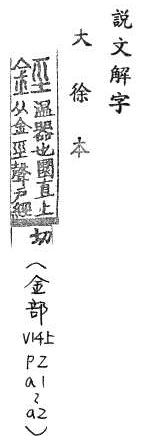 說文解字
大徐本
温器也圜直上
从金巠聲戶經
切
(金部
V14上
P2
a1
~
a2)